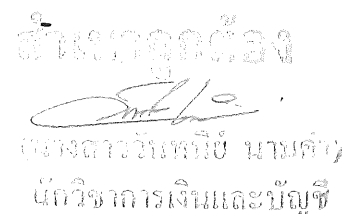 สำเนาถูกต้อง
(นางสาววันทนีย์ นามคำ)
นักวิชาการเงินและบัญชี